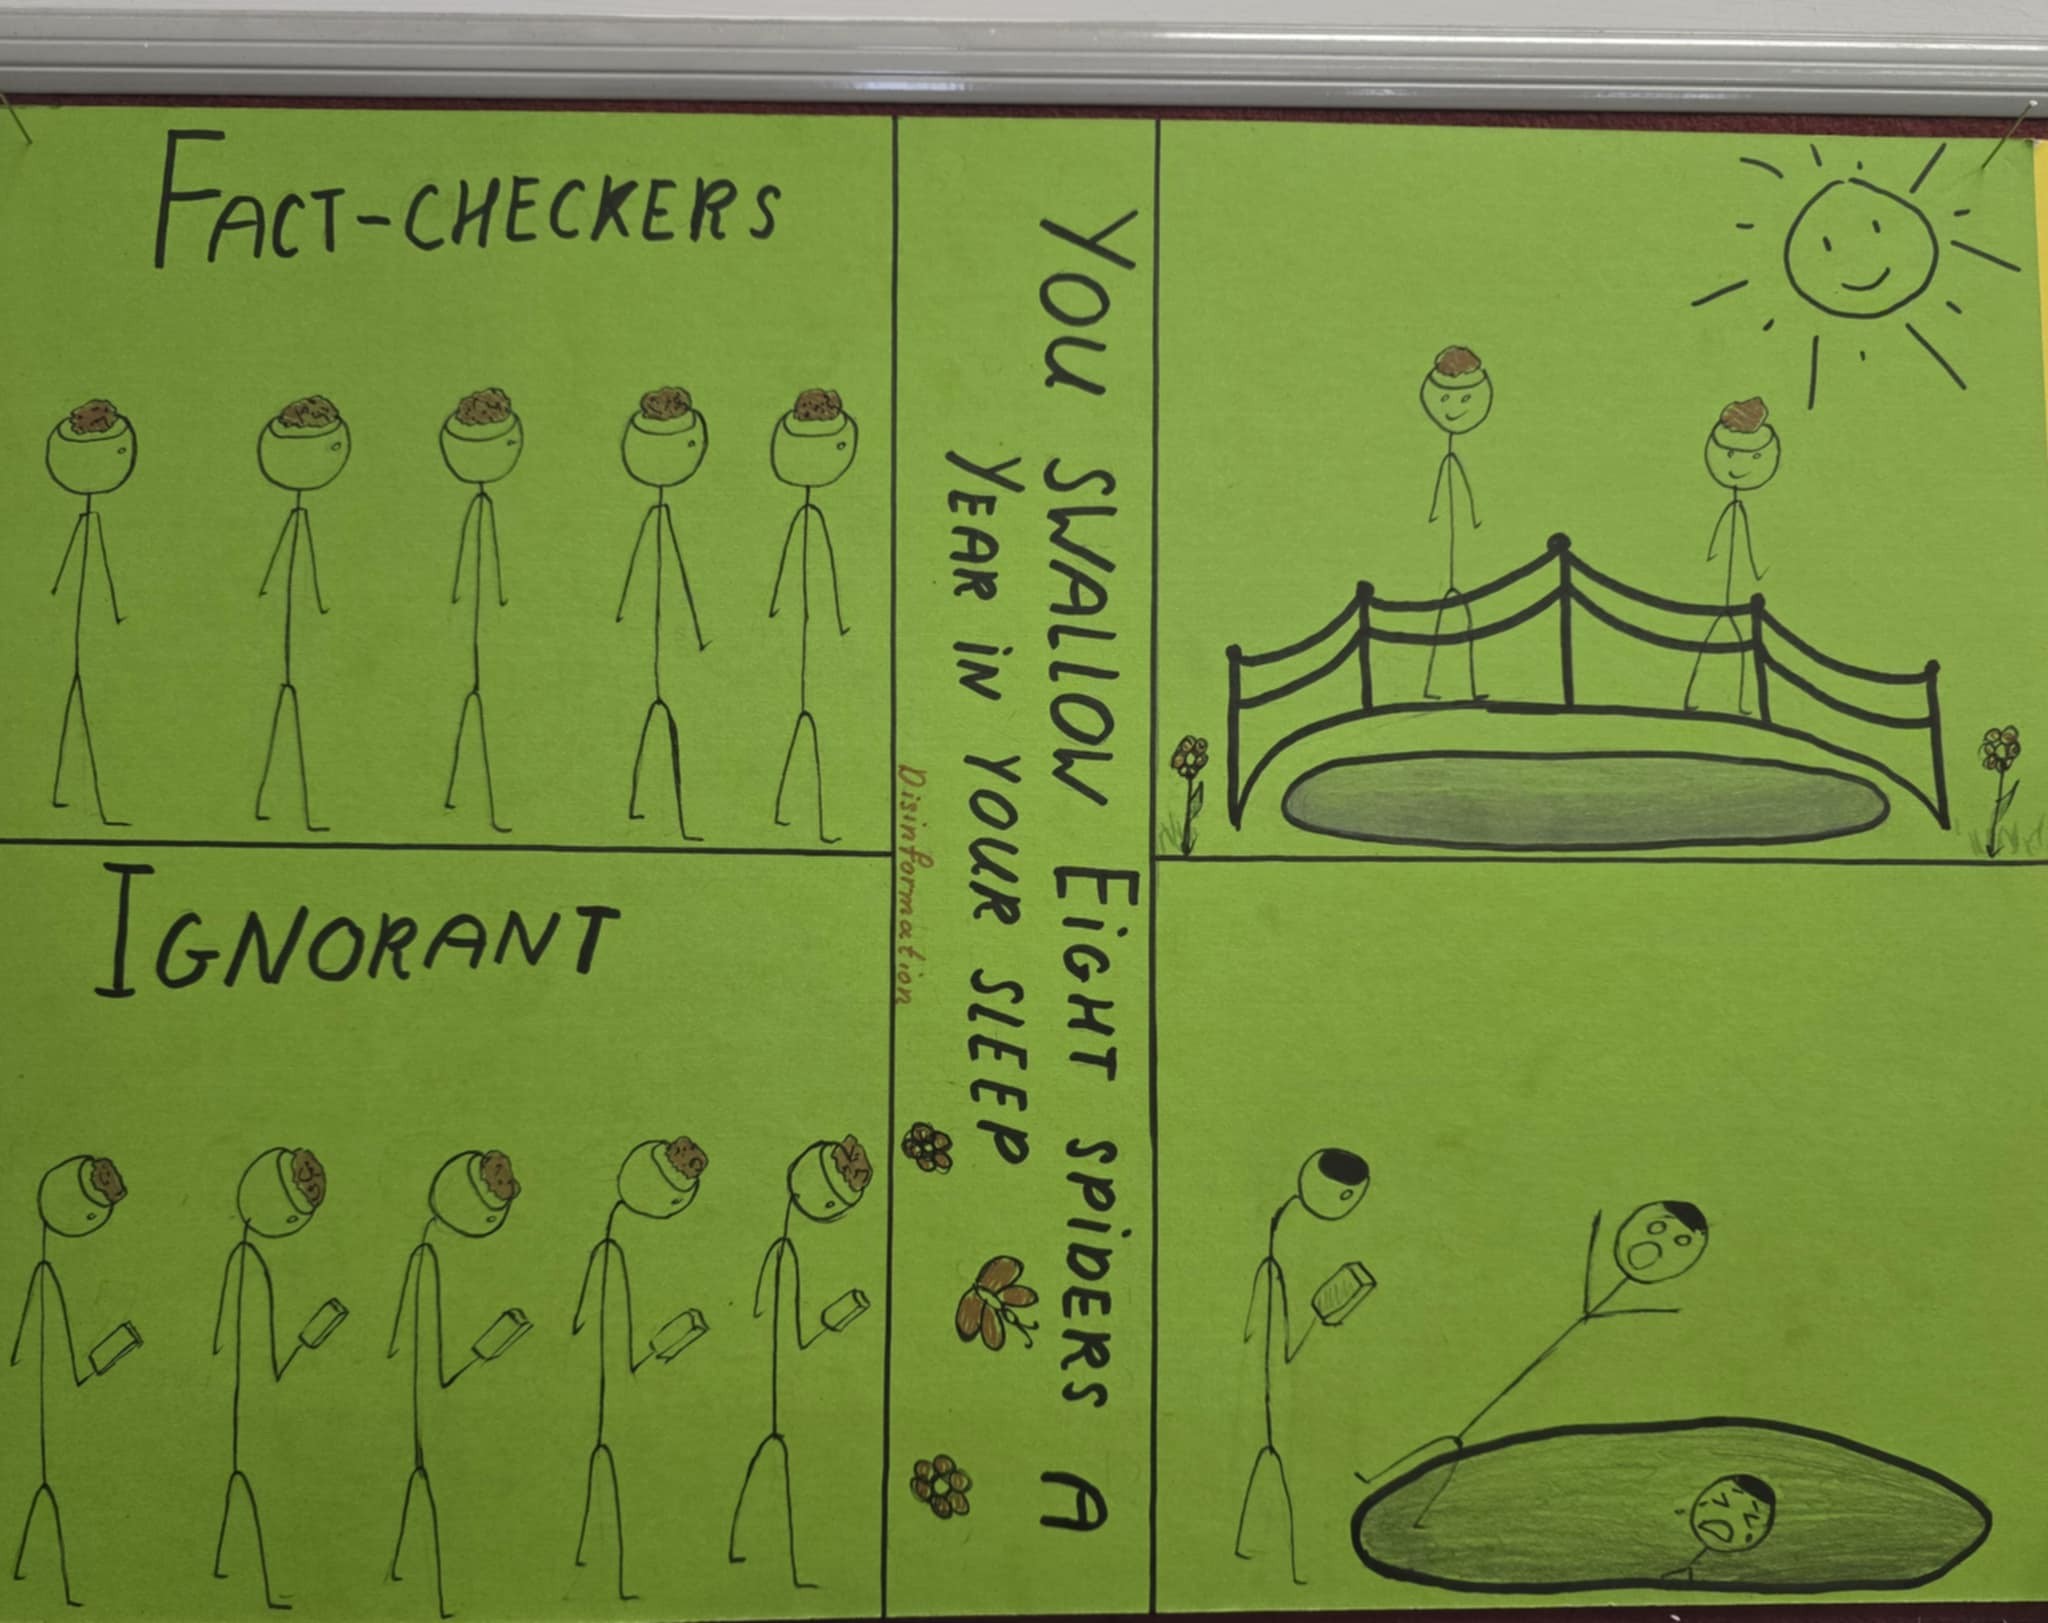 FACT-CHECKERS
IGNORANT
YOU SWALLOW EIGHT SPIDERS A
YEAR IN YOUR SLEEP
Disinformation